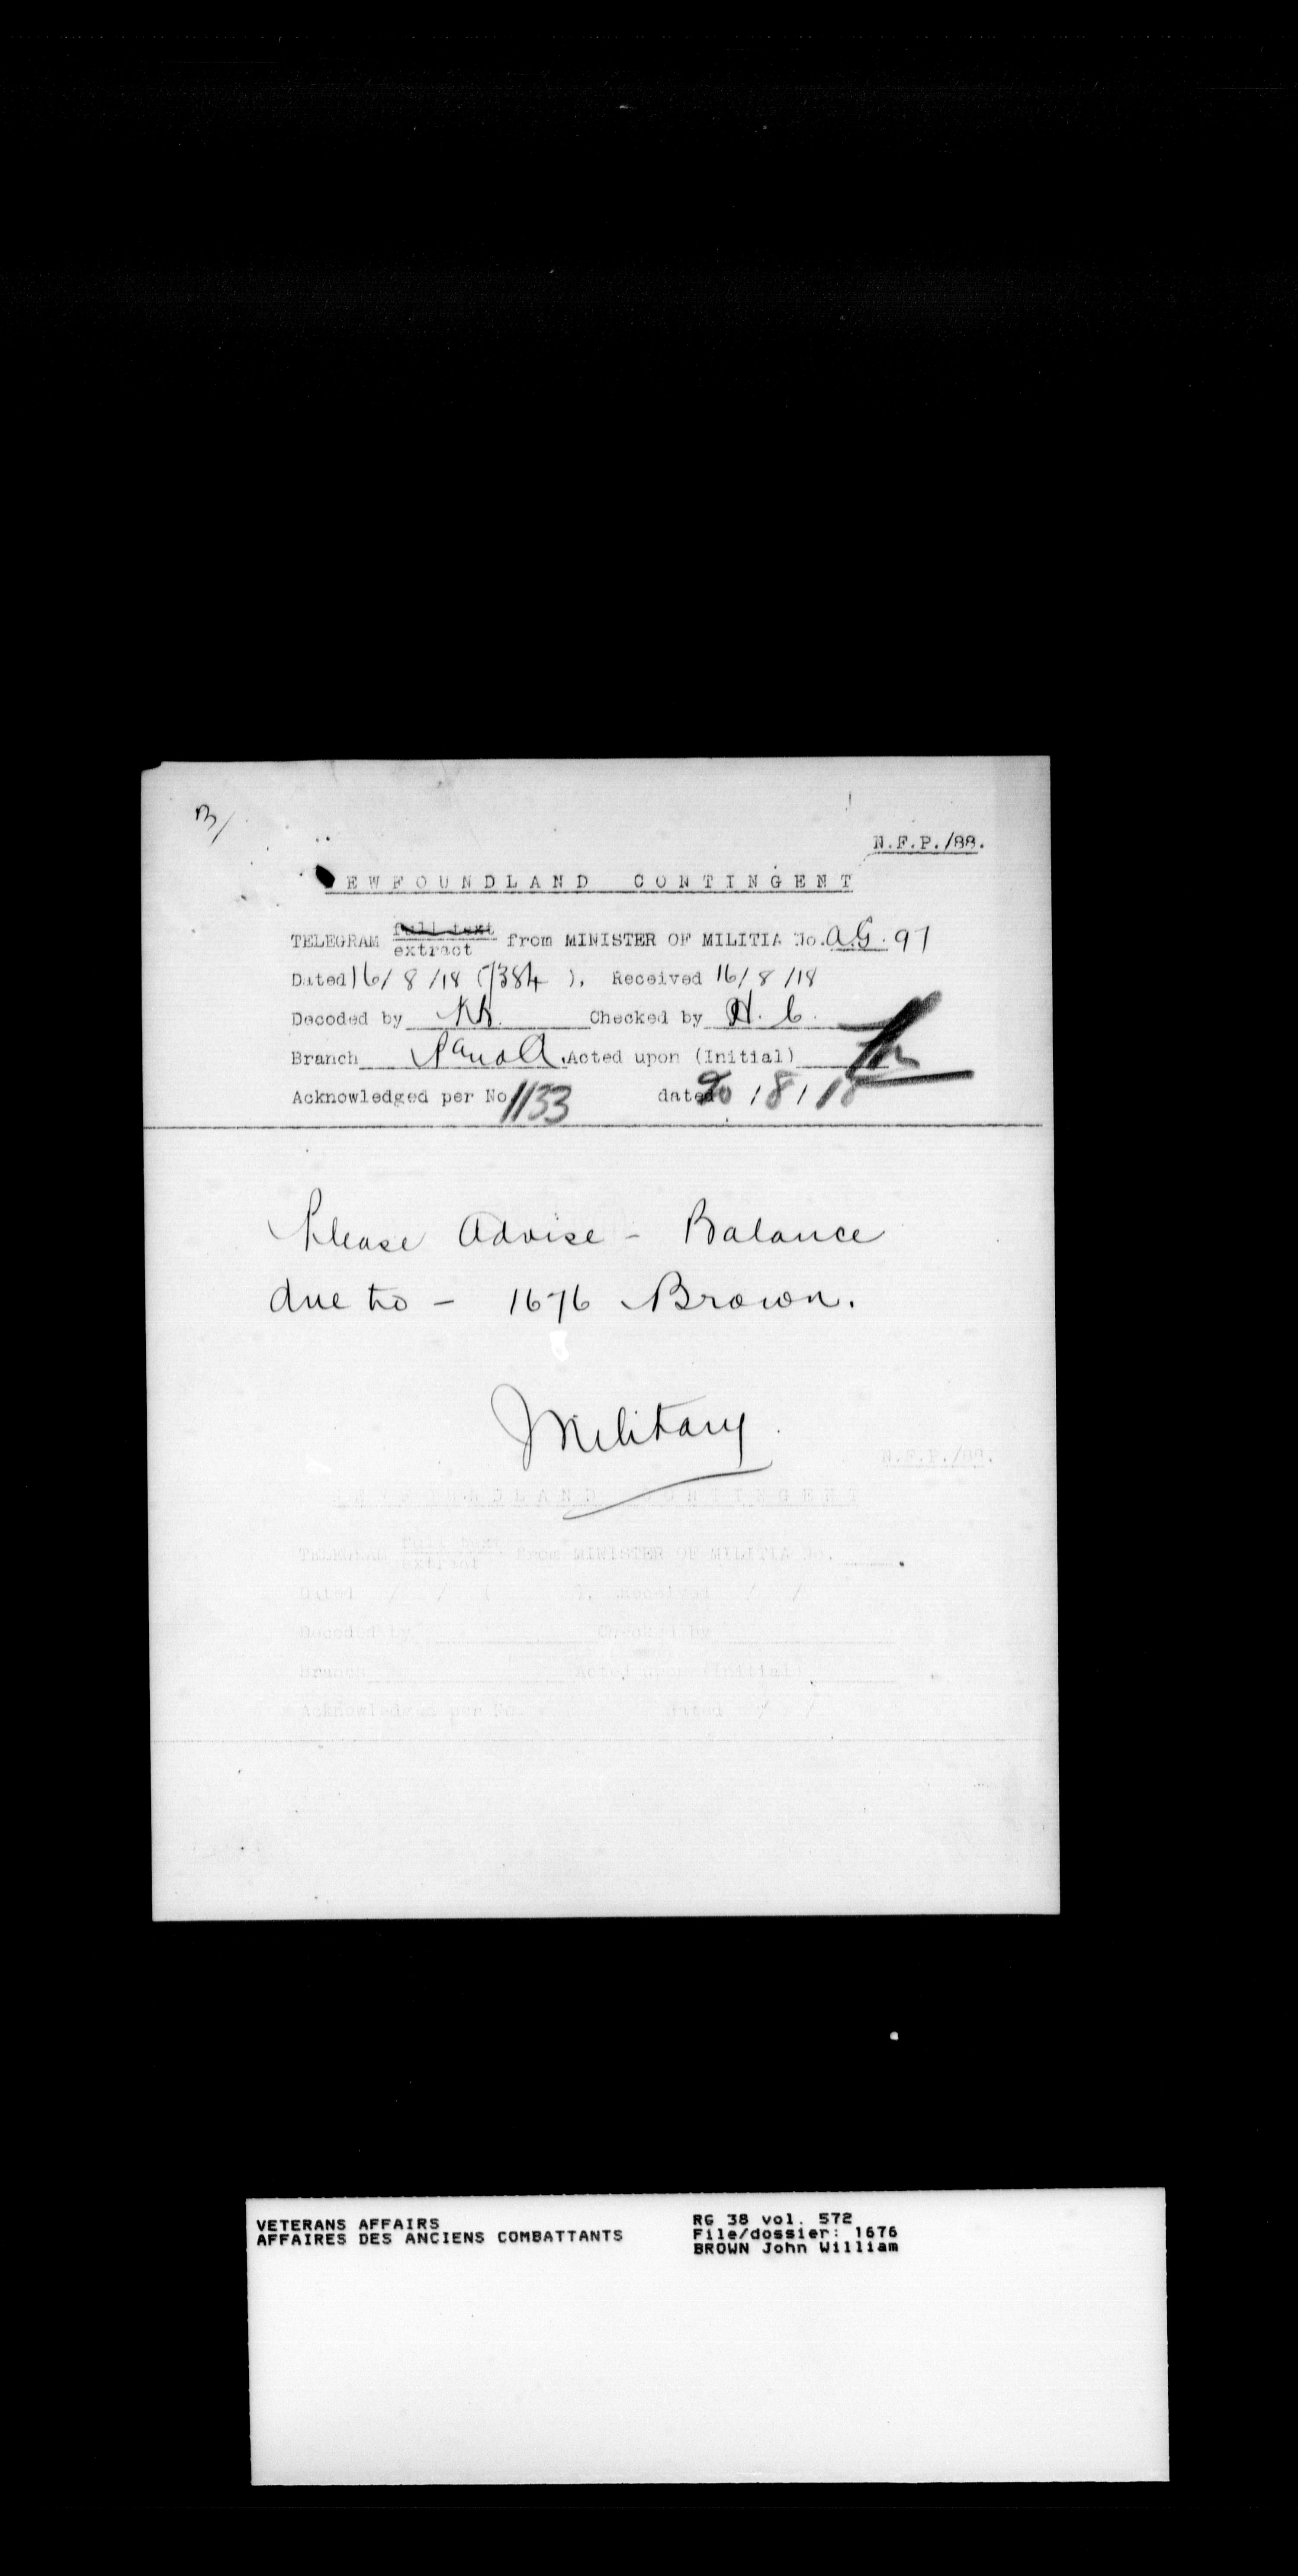 B/
N.F.P./88.
EWFOUNDLAND CONTINGENT
TELEGRAM full text extract from MINISTER OF MILITIA No. A.G. 97
Dated 16/8/18 (7384 ), Received 16/8/18
Decoded by Checked by H. C.
Branch P and A. Acted upon (Initial)
Acknowledged per No 1133 dated 20/8/18
Please Advise - Balance
due to - 1676 Brown.
Military.
N.F.P./88.
NEWFOUNDLAND CONTINGENT
TELEGRAM full text extract from MINISTER OF MILITIA No. .
Dated / / ( ). Received / /
Decoded by Checked by
Branch Acted upon (Initial)
Acknowledged per No. dated / /
VETERANS AFFAIRS
AFFAIRES DES ANCIENS COMBATTANTS
RG 38 vol. 572
File/dossier: 1676
BROWN John William